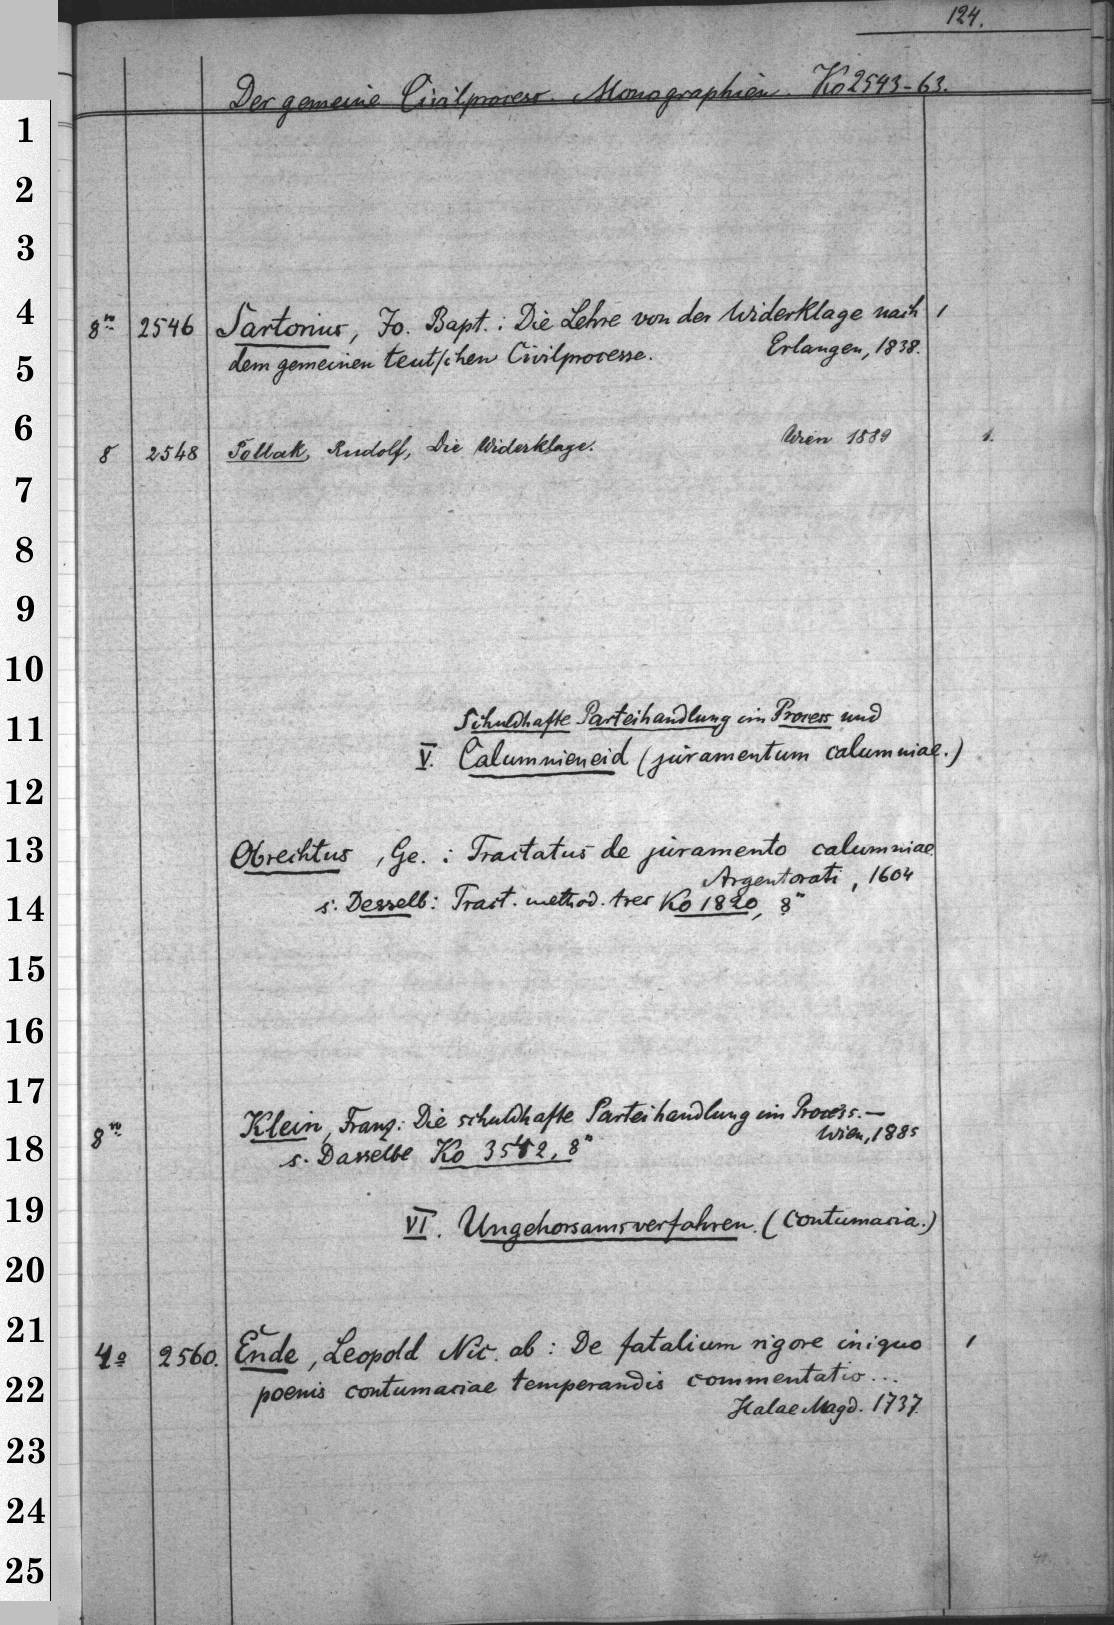 124.
Der gemeine Civilprocess. Monographien. Ko 2543-63.
1
2
3
4 8º 2546 Sartorius, Jo. Bapt.: Die Lehre von der Widerklage nach 1
5 dem gemeinen teutschen Civilprocesse. Erlangen, 1838.
6 8 2548 Pollak, Rudolf, Die Widerklage. Wien 1889 1.
7
8
9
10
11 Schuldhafte Parteihandlung im Process und
V. Calumnieneid (juramentum calumniae.)
12
13 Obrechtus, Ge.: Tractatus de juramento calumniae
Argentorati, 1604
14 s. Desselb: Tract. method. tres Ko 1820, 8º
15
16
17
Klein, Franz: Die schuldhafte Parteihandlung im Process. —
8º Wien, 1885
18 s. Dasselbe Ko 3582, 8º
19 VI. Ungehorsamsverfahren. (Contumacia.)
20
21 4º 2560. Ende, Leopold Nic. ab: De fatalium rigore iniquo 1
22 poenis contumaciae temperandis commentatio...
Halae Magd. 1737.
23
24
25